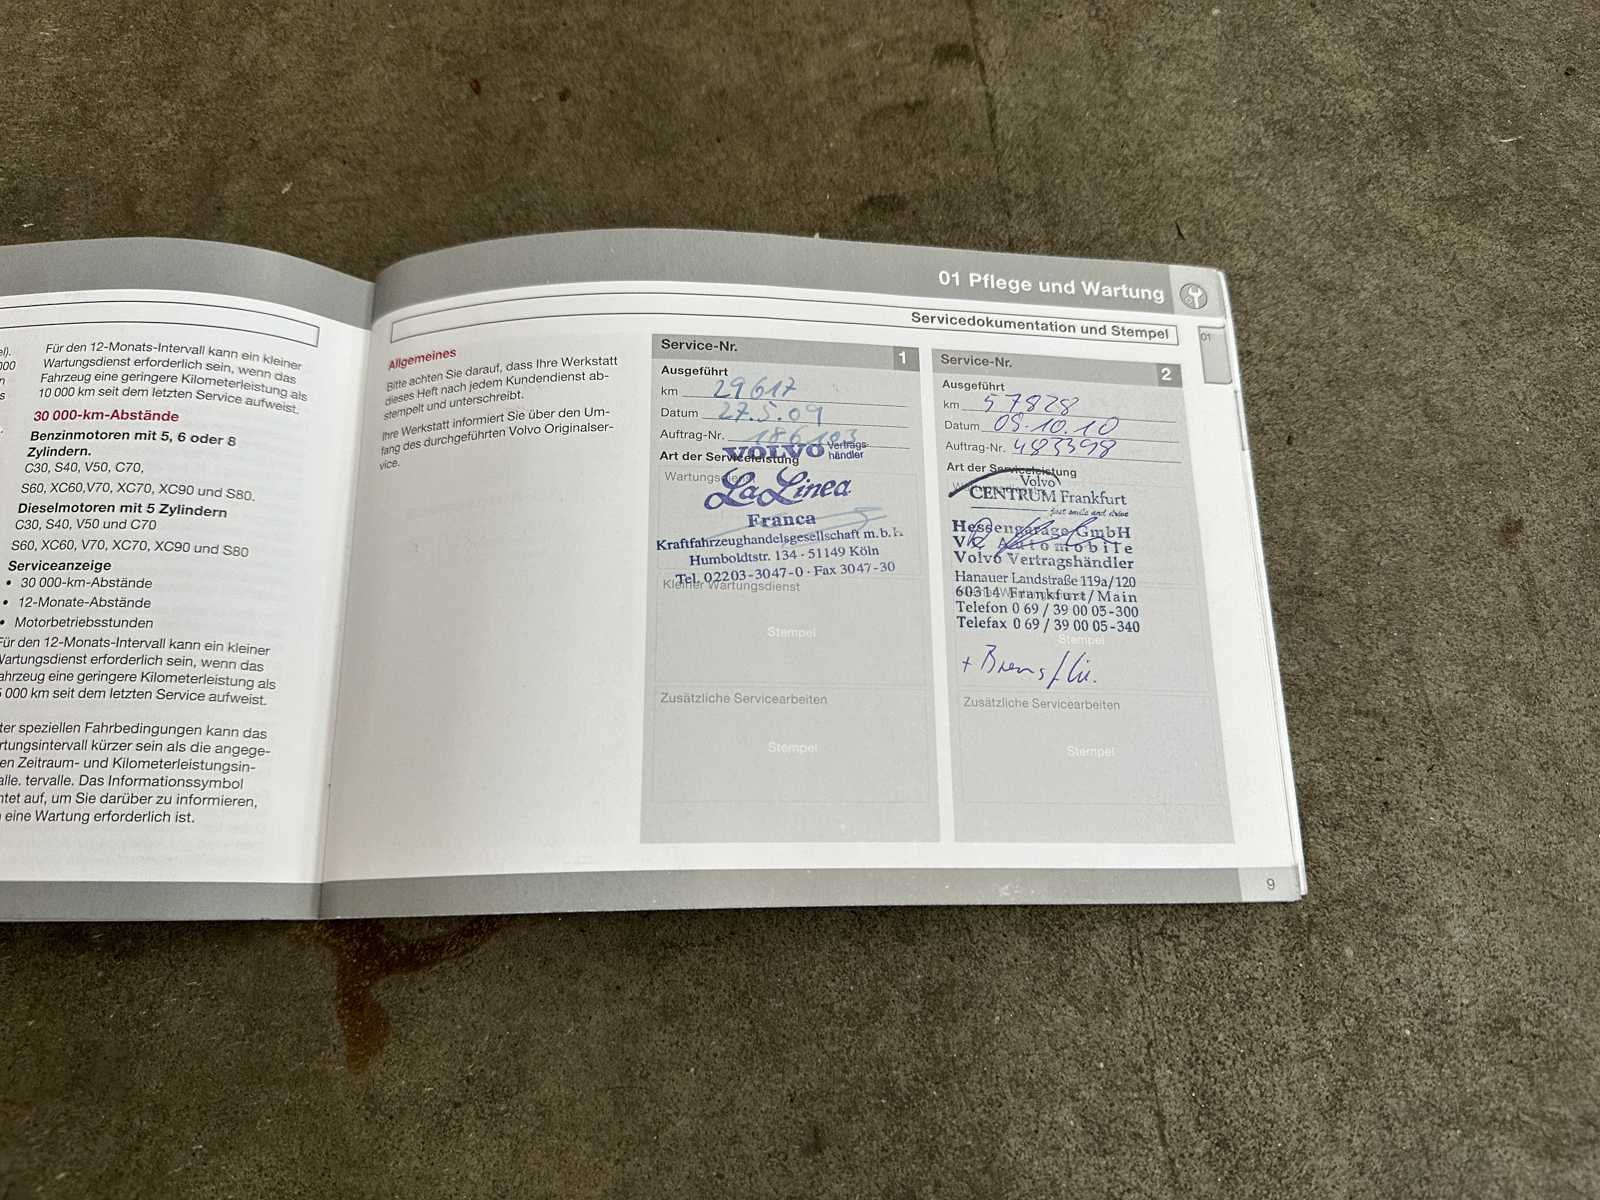 Für den 12-Monats-Intervall kann ein kleiner
Wartungsdienst erforderlich sein, wenn das
Fahrzeug eine geringere Kilometerleistung als
10 000 km seit dem letzten Service aufweist.
30 000-km-Abstände
Benzinmotoren mit 5, 6 oder 8
Zylindern.
C30, S40, V50, C70,
S60, XC60,V70, XC70, XC90 und S80.
Dieselmotoren mit 5 Zylindern
C30, S40, V50 und C70
S60, XC60, V70, XC70, XC90 und S80
Serviceanzeige
• 30 000-km-Abstände
• 12-Monate-Abstände
• Motorbetriebsstunden
Für den 12-Monats-Intervall kann ein kleiner
Wartungsdienst erforderlich sein, wenn das
ahrzeug eine geringere Kilometerleistung als
000 km seit dem letzten Service aufweist.
ter speziellen Fahrbedingungen kann das
rtungsintervall kürzer sein als die angege-
en Zeitraum- und Kilometerleistungsin-
alle. tervalle. Das Informationssymbol
htet auf, um Sie darüber zu informieren,
eine Wartung erforderlich ist.
01 Pflege und Wartung
Servicedokumentation und Stempel
01
Allgemeines
Bitte achten Sie darauf, dass Ihre Werkstatt
dieses Heft nach jedem Kundendienst ab-
stempelt und unterschreibt.
Ihre Werkstatt informiert Sie über den Um-
fang des durchgeführten Volvo Originalser-
vice.
Service-Nr. 1
Ausgeführt
km 29617
Datum 27.5.09
Auftrag-Nr. 186103
Art der Serviceleistung
VOLVO Vertrags-
händler
Wartungsdienst
La Linea
Franca
Kraftfahrzeughandelsgesellschaft m.b.H.
Humboldtstr. 134 · 51149 Köln
Tel. 02203-3047-0 · Fax 3047-30
Kleiner Wartungsdienst
Stempel
Zusätzliche Servicearbeiten
Stempel
Service-Nr. 2
Ausgeführt
km 57828
Datum 08.10.10
Auftrag-Nr. 483398
Art der Serviceleistung
Volvo
CENTRUM Frankfurt
just smile and drive
Hessengarage GmbH
Automobile
Volvo Vertragshändler
Hanauer Landstraße 119a/120
60314 Frankfurt/Main
Telefon 0 69 / 39 00 05-300
Telefax 0 69 / 39 00 05-340
Stempel
+ Bremsflü.
Zusätzliche Servicearbeiten
Stempel
9